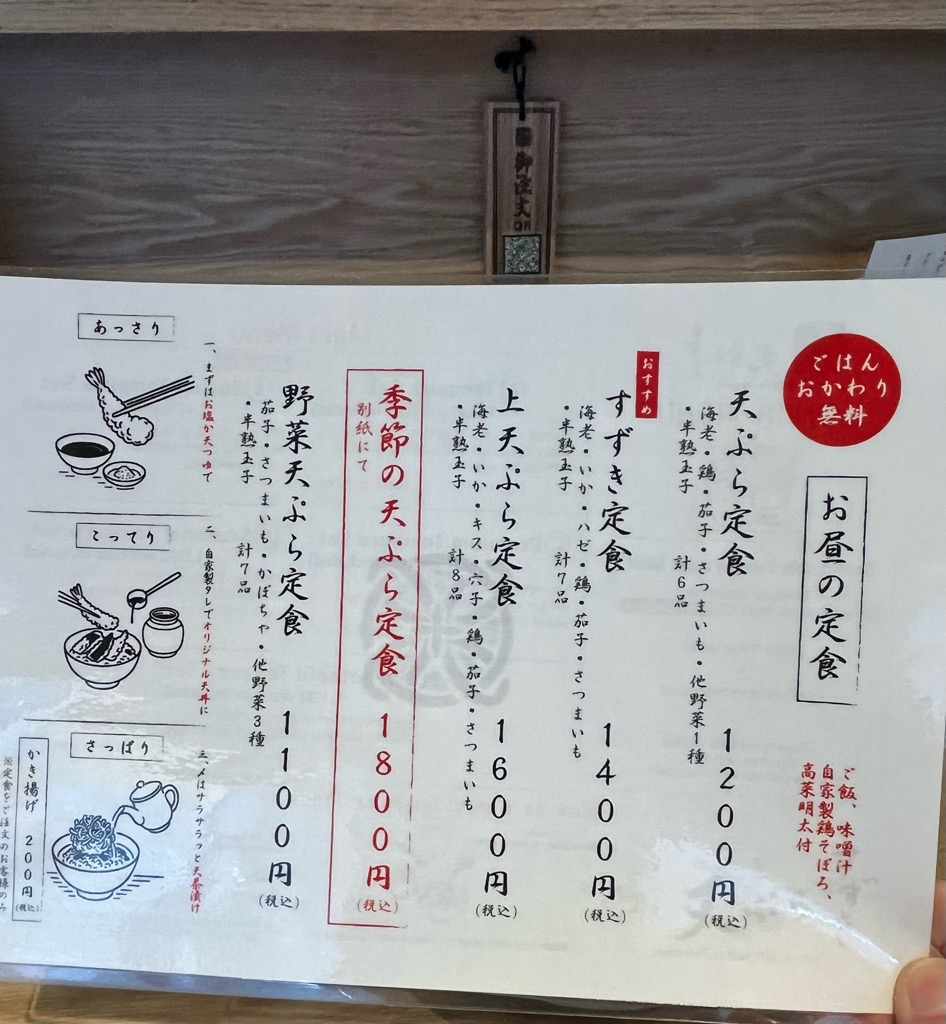 御注文
ごはん
おかわり
無料
お昼の定食
ご飯、味噌汁
自家製鶏そぼろ、
高菜明太付
天ぷら定食 1200円(税込)
海老・鶏・茄子・さつまいも・他野菜1種
・半熟玉子 計6品
おすすめ
すずき定食 1400円(税込)
海老・いか・ハゼ・鶏・茄子・さつまいも
・半熟玉子 計7品
上天ぷら定食 1600円(税込)
海老・いか・キス・穴子・鶏・茄子・さつまいも
・半熟玉子 計8品
季節の天ぷら定食 1800円(税込)
別紙にて
野菜天ぷら定食 1100円(税込)
茄子・さつまいも・かぼちゃ・他野菜3種
・半熟玉子 計7品
あっさり
一、まずはお塩か天つゆで
こってり
二、自家製タレでオリジナル天丼に
さっぱり
三、〆はサラサラッと天茶漬け
かき揚げ 200円(税込)
※定食をご注文のお客様のみ